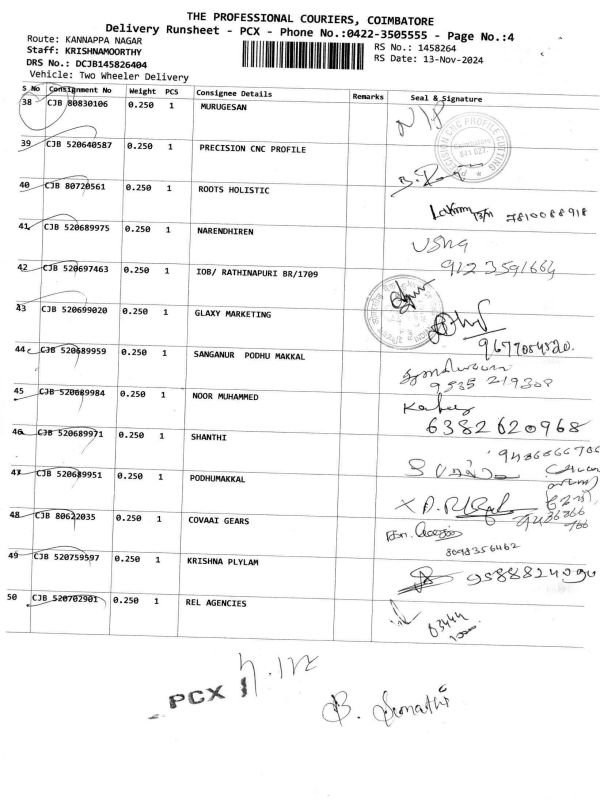 THE PROFESSIONAL COURIERS, COIMBATORE
Delivery Runsheet - PCX - Phone No.:0422-3505555 - Page No.:4
Route: KANNAPPA NAGAR
RS No.: 1458264
Staff: KRISHNAMOORTHY
RS Date: 13-Nov-2024
DRS No.: DCJB145826404
Vehicle: Two Wheeler Delivery
S No Consignment No Weight PCS Consignee Details Remarks Seal & Signature
38 CJB 80830106 0.250 1 MURUGESAN
39 CJB 520640587 0.250 1 PRECISION CNC PROFILE
40 CJB 80720561 0.250 1 ROOTS HOLISTIC 7810088918
41 CJB 520689975 0.250 1 NARENDHIREN USHA
42 CJB 520697463 0.250 1 IOB/ RATHINAPURI BR/1709 9123591664
43 CJB 520699020 0.250 1 GLAXY MARKETING
44 CJB 520689959 0.250 1 SANGANUR PODHU MAKKAL
9535 219308
45 CJB 520689984 0.250 1 NOOR MUHAMMED
6382620968
46 CJB 520689971 0.250 1 SHANTHI
47 CJB 520689951 0.250 1 PODHUMAKKAL
48 CJB 80622035 0.250 1 COVAAI GEARS
8098356462
49 CJB 520759597 0.250 1 KRISHNA PLYLAM
50 CJB 520702901 0.250 1 REL AGENCIES
PCX
B. Sumathi